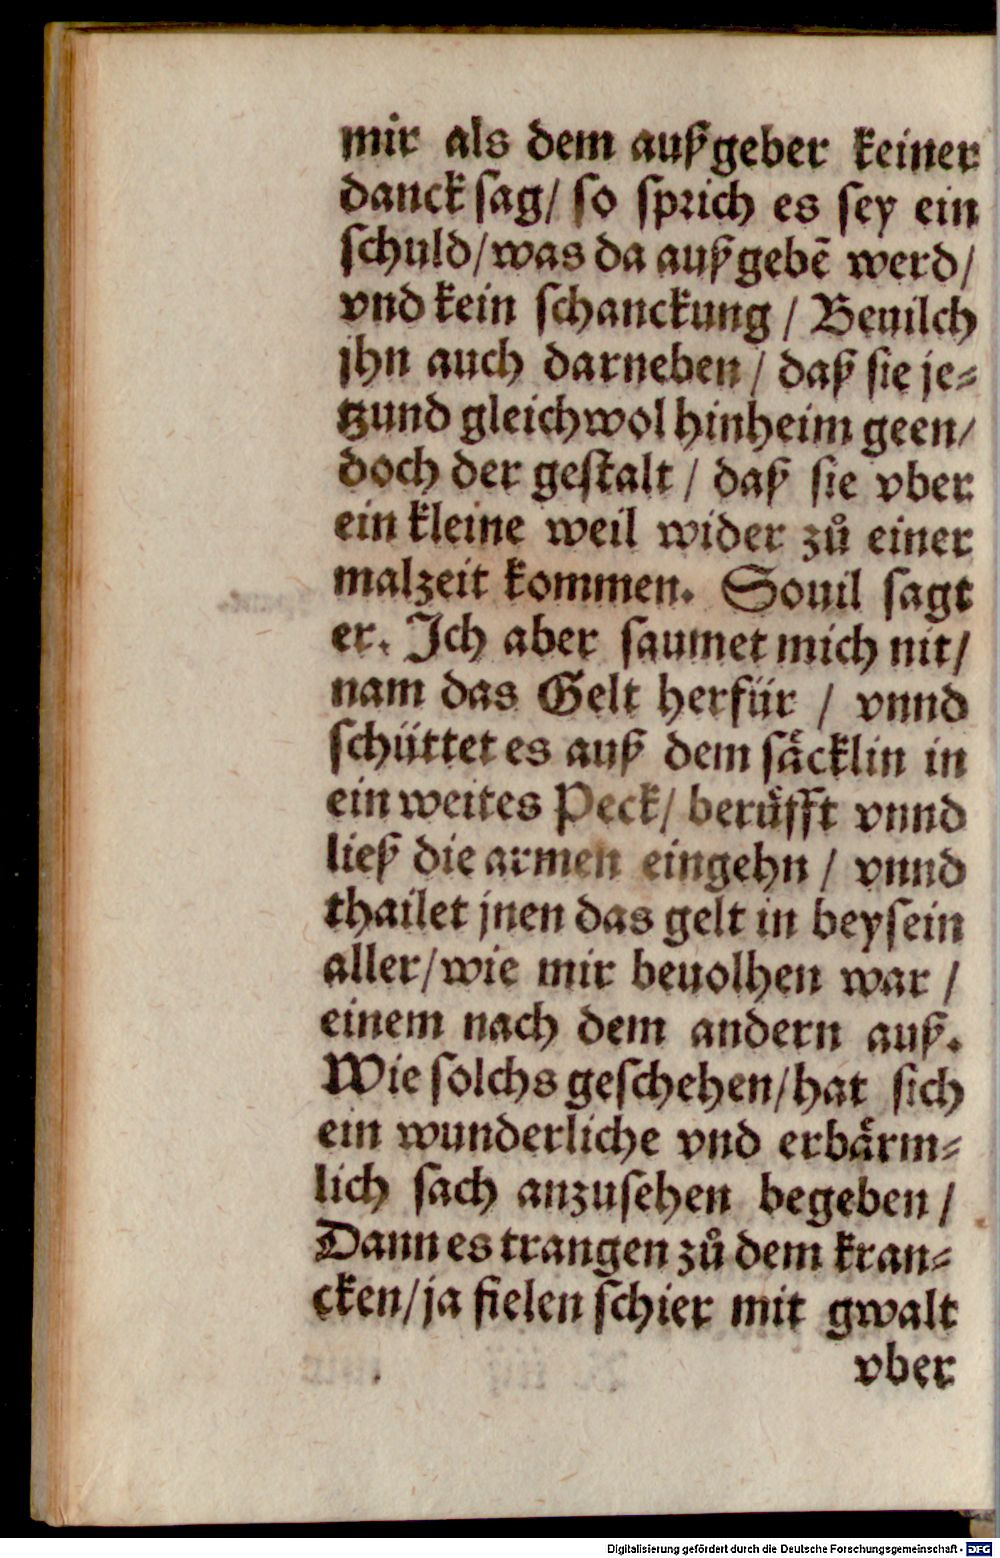 mir als dem außgeber keiner
danck sag/ so sprich es sey ein
schuld/was da außgebẽ werd/
vnd kein schanckung / Beuilch
jhn auch darneben / daß sie je⸗
tzund gleichwol hinheim geen/
doch der gestalt / daß sie vber
ein kleine weil wider zů einer
malzeit kommen. Souil sagt
er. Ich aber saumet mich nit/
nam das Gelt herfür / vnnd
schüttet es auß dem säcklin in
ein weites Peck/ berüfft vnnd
ließ die armen eingehn / vnnd
thailet jnen das gelt in beysein
aller/wie mir beuolhen war /
einem nach dem andern auß.
Wie solchs geschehen/hat sich
ein wunderliche vnd erbärm⸗
lich sach anzusehen begeben /
Dann es trangen zů dem kran⸗
cken/ja fielen schier mit gwalt
vber
Digitalisierung gefördert durch die Deutsche Forschungsgemeinschaft - DFG